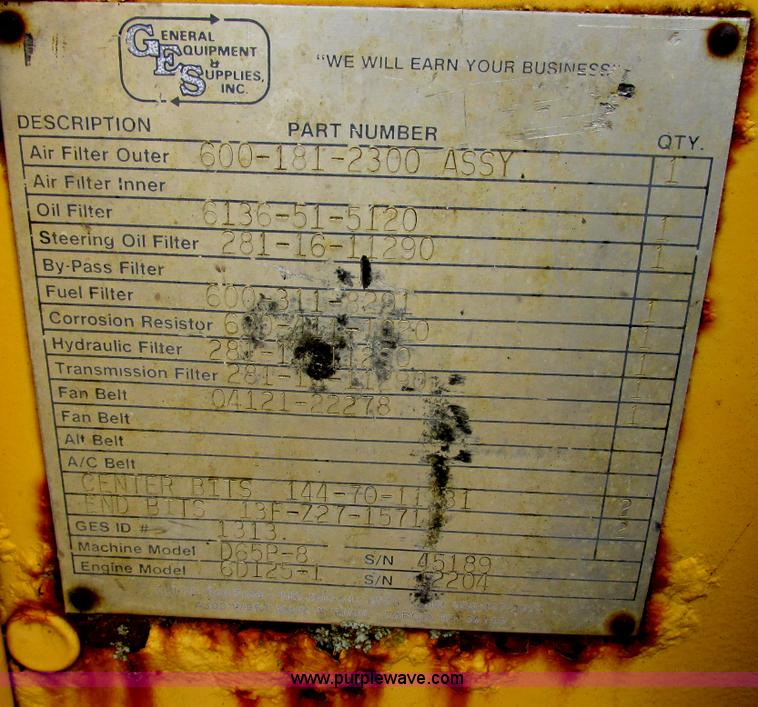 GENERAL
EQUIPMENT
&
SUPPLIES,
INC.
"WE WILL EARN YOUR BUSINESS"
DESCRIPTION PART NUMBER QTY.
Air Filter Outer 600-181-2300 ASSY 1
Air Filter Inner
Oil Filter 6136-51-5120 1
Steering Oil Filter 281-16-11290 1
By-Pass Filter
Fuel Filter 1
Corrosion Resistor 1
Hydraulic Filter 1
Transmission Filter 1
Fan Belt 04121-22278 1
Fan Belt
Alt Belt
A/C Belt
CENTER BITS 2
END BITS 13F-Z27-1571 2
GES ID # 1313.
Machine Model D65P-8 S/N 45189
Engine Model 6D125-1 S/N
www.purplewave.com